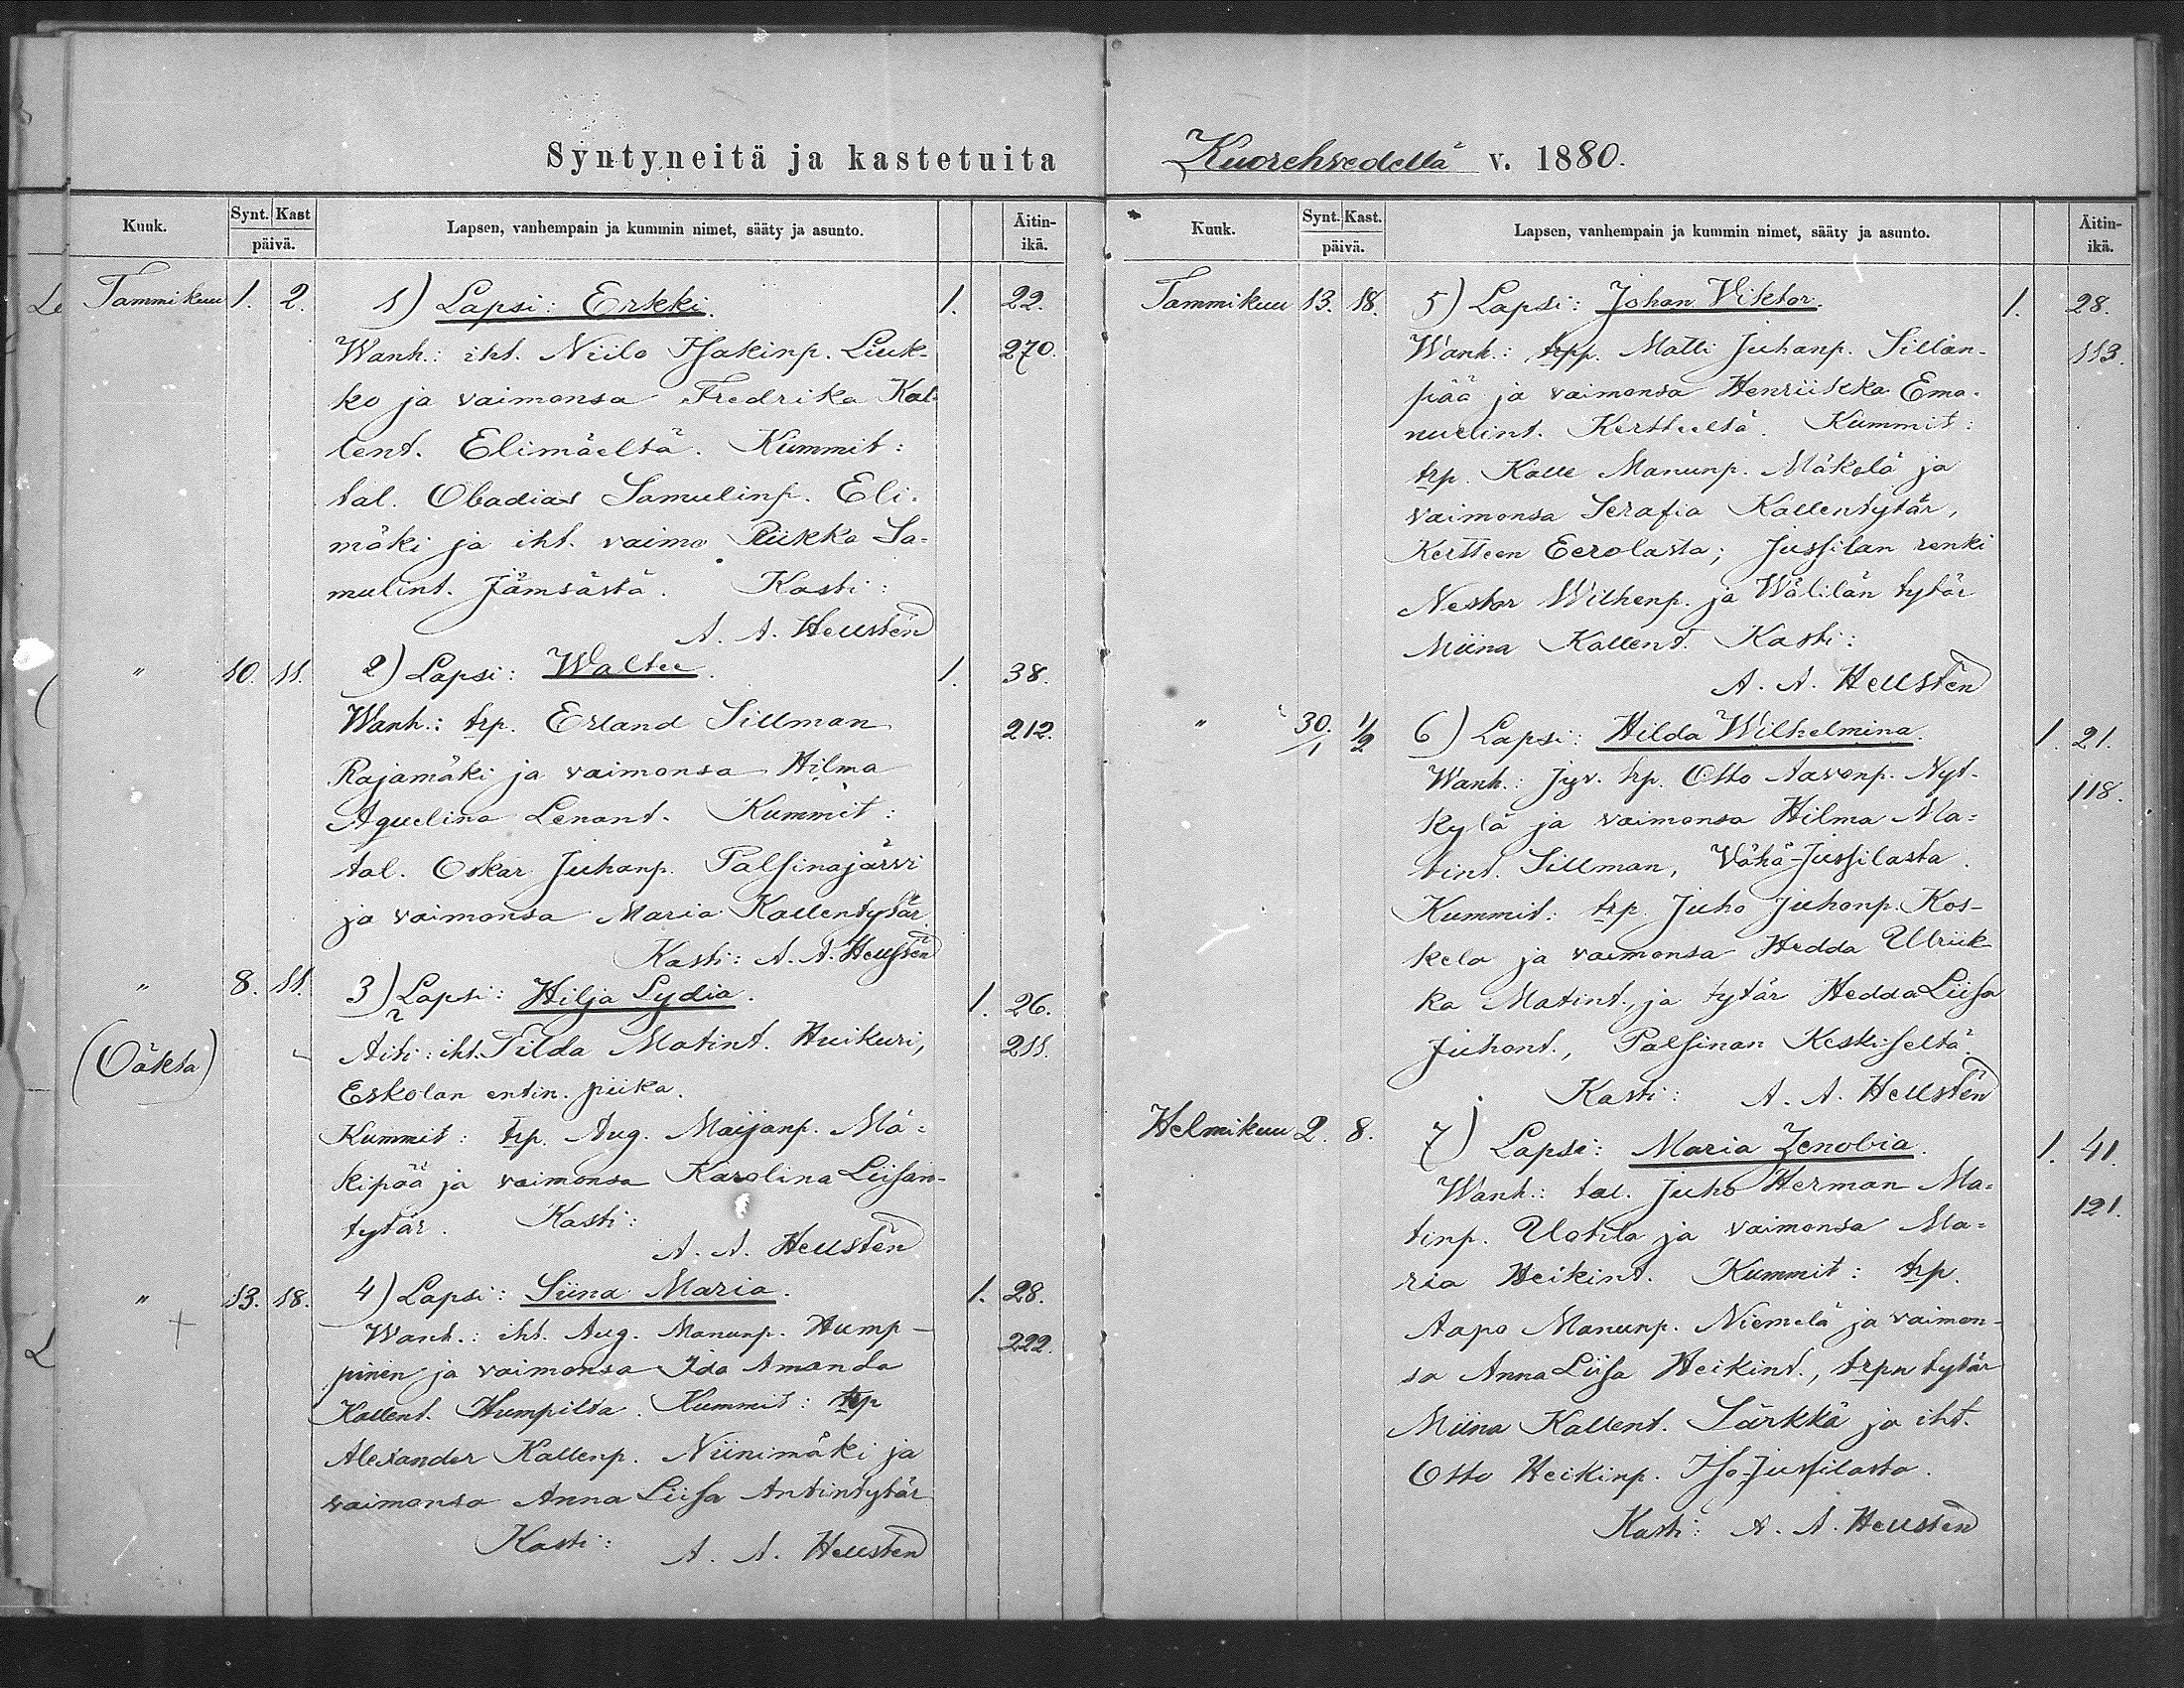 Syntyneitä ja kastetuita
Kuuk. Synt. Kast päivä. Lapsen, vanhempain ja kummin nimet, sääty ja asunto. Äitin-ikä.
Tammikuu 1. 2. 1) Lapsi: Erkki. 1. 22.
Wanh.: iht. Niilo Isakinp. Liuk- 270.
ko ja vaimonsa Fredrika Kal-
lent. Elimäeltä. Kummit:
tal. Obadias Samulinp. Eli-
mäki ja iht. vaimo Riikka Sa-
mulint. Jämsästä. Kasti:
A. A. Hellstén
" 10. 11. 2) Lapsi: Waltee. 1. 38.
Wanh.: trp. Erland Sillman 212.
Rajamäki ja vaimonsa Hilma
Aquelina Lenant. Kummit:
tal. Oskar Juhanp. Palsinajärvi
ja vaimonsa Maria Kallentytär
Kasti: A. A. Hellstén
" 8. 11. 3) Lapsi: Hilja Lydia. 1. 26.
(Oäkta) Äiti: iht. Tilda Matint. Huikuri, 211.
Eskolan entin. piika.
Kummit: trp. Aug. Maijanp. Mä-
kipää ja vaimonsa Karolina Liisan-
tytär. Kasti:
A. A. Hellstén
" 13. 18. 4) Lapsi: Siina Maria. 1. 28.
Wanh.: iht. Aug. Manunp. Hump- 222.
pinen ja vaimonsa Ida Amanda
Kallent. Humpilta. Kummit: trp
Alexander Kallenp. Niinimäki ja
vaimonsa Anna Liisa Antintytär
Kasti: A. A. Hellstén
Kuorehvedellä v. 1880.
Kuuk. Synt. Kast. päivä. Lapsen, vanhempain ja kummin nimet, sääty ja asunto. Äitin-ikä.
Tammikuu 13. 18. 5) Lapsi: Johan Viktor. 1. 28.
Wanh.: trpp. Matti Juhanp. Sillan- 113.
pää ja vaimonsa Henriikka Ema-
nuelint. Kertteeltä. Kummit:
trp. Kalle Manunp. Mäkelä ja
vaimonsa Serafia Kallentytär,
Kertteen Eerolasta; Jussilan renki
Nestor Wilhenp. ja Wälilän tytär
Miina Kallent. Kasti:
A. A. Hellstén
" 30/1 1/2 6) Lapsi: Hilda Wilhelmina. 1. 21.
Wanh.: Jyv. trp. Otto Aavonp. Nyt- 118.
kylä ja vaimonsa Hilma Ma-
tint. Sillman, Vähä-Jussilasta.
Kummit: trp. Juho Juhonp. Kos-
kela ja vaimonsa Hedda Ulriik-
ka Matint., ja tytär Hedda Liisa
Juhont., Palsinan Keskiseltä.
Kasti: A. A. Hellstén
Helmikuu 2. 8. 7) Lapsi: Maria Zenobia. 1. 41.
Wanh.: tal. Juho Herman Ma- 121.
tinp. Uotila ja vaimonsa Ma-
ria Heikint. Kummit: trp.
Aapo Manunp. Niemelä ja vaimon-
sa Anna Liisa Heikint., trpn tytär
Miina Kallent. Särkkä ja iht.
Otto Heikinp. Iso-Jussilasta.
Kasti: A. A. Hellstén